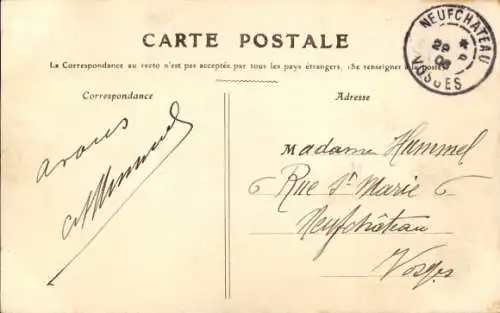 CARTE POSTALE
La Correspondance au recto n'est pas acceptée par tous les pays étrangers, (Se renseigner à la poste)
Correspondance
Adresse
NEUFCHATEAU
VOSGES
Madame Hummel
6 Rue St Marie 6
Neufchâteau
Vosges